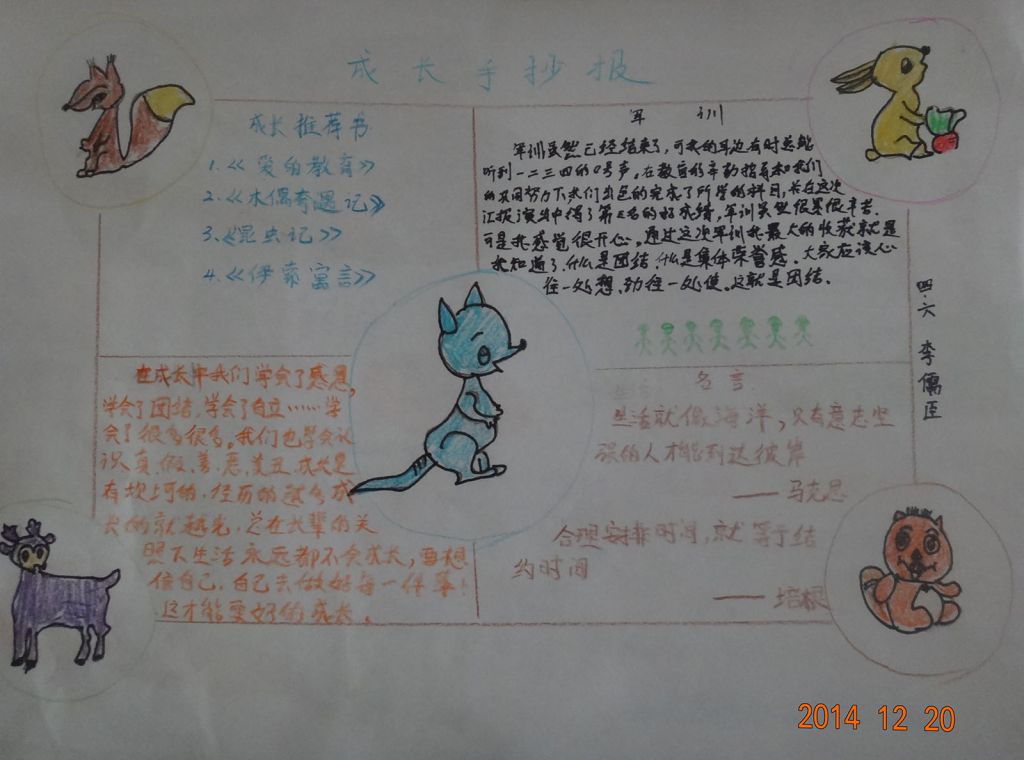 成长手抄报
成长推荐书
1.《爱的教育》
2.《木偶奇遇记》
3.《昆虫记》
4.《伊索寓言》
军训
军训虽然已经结束了,可我的耳边有时总能
听到一二三四的口号声。在教官的辛勤指导和我们
的共同努力下我们出色的完成了所学的科目,在这次
汇报演出中得了第三名的好成绩,军训虽然很累很辛苦.
可是我感觉很开心。通过这次军训我最大的收获就是
我知道了,什么是团结,什么是集体荣誉感。大家应该心
往一处想,劲往一处使。这就是团结。
四.六 李儒臣
在成长中我们学会了感恩,
学会了团结,学会了自立……学
会了很多很多。我们也学会认
识真、假、善、恶、美丑,成长是
有坎坷的,经历的越多成
长的就越先,总在长辈的关
照下生活永远都不会成长,要相
信自己,自己去做好每一件事!
这才能更好的成长。
名言
生活就像海洋,只有意志坚
强的人才能到达彼岸
——马克思
合理安排时间,就等于结
约时间
——培根
2014 12 20